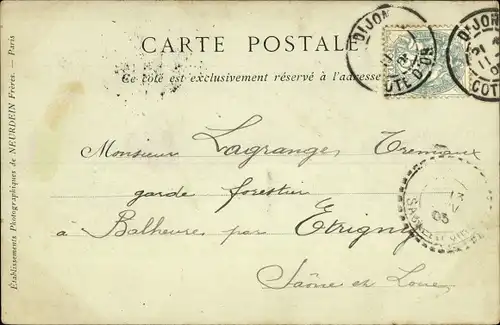 CARTE POSTALE
Ce côté est exclusivement réservé à l'adresse
DIJON
COTE D'OR
DIJON
COTE
Monsieur Lagranges Tremaux
garde forestier
à Balheure par Etrigny
Saône et Loire
03
SAÔNE-ET
Établissements Photographiques de NEURDEIN Frères. — Paris